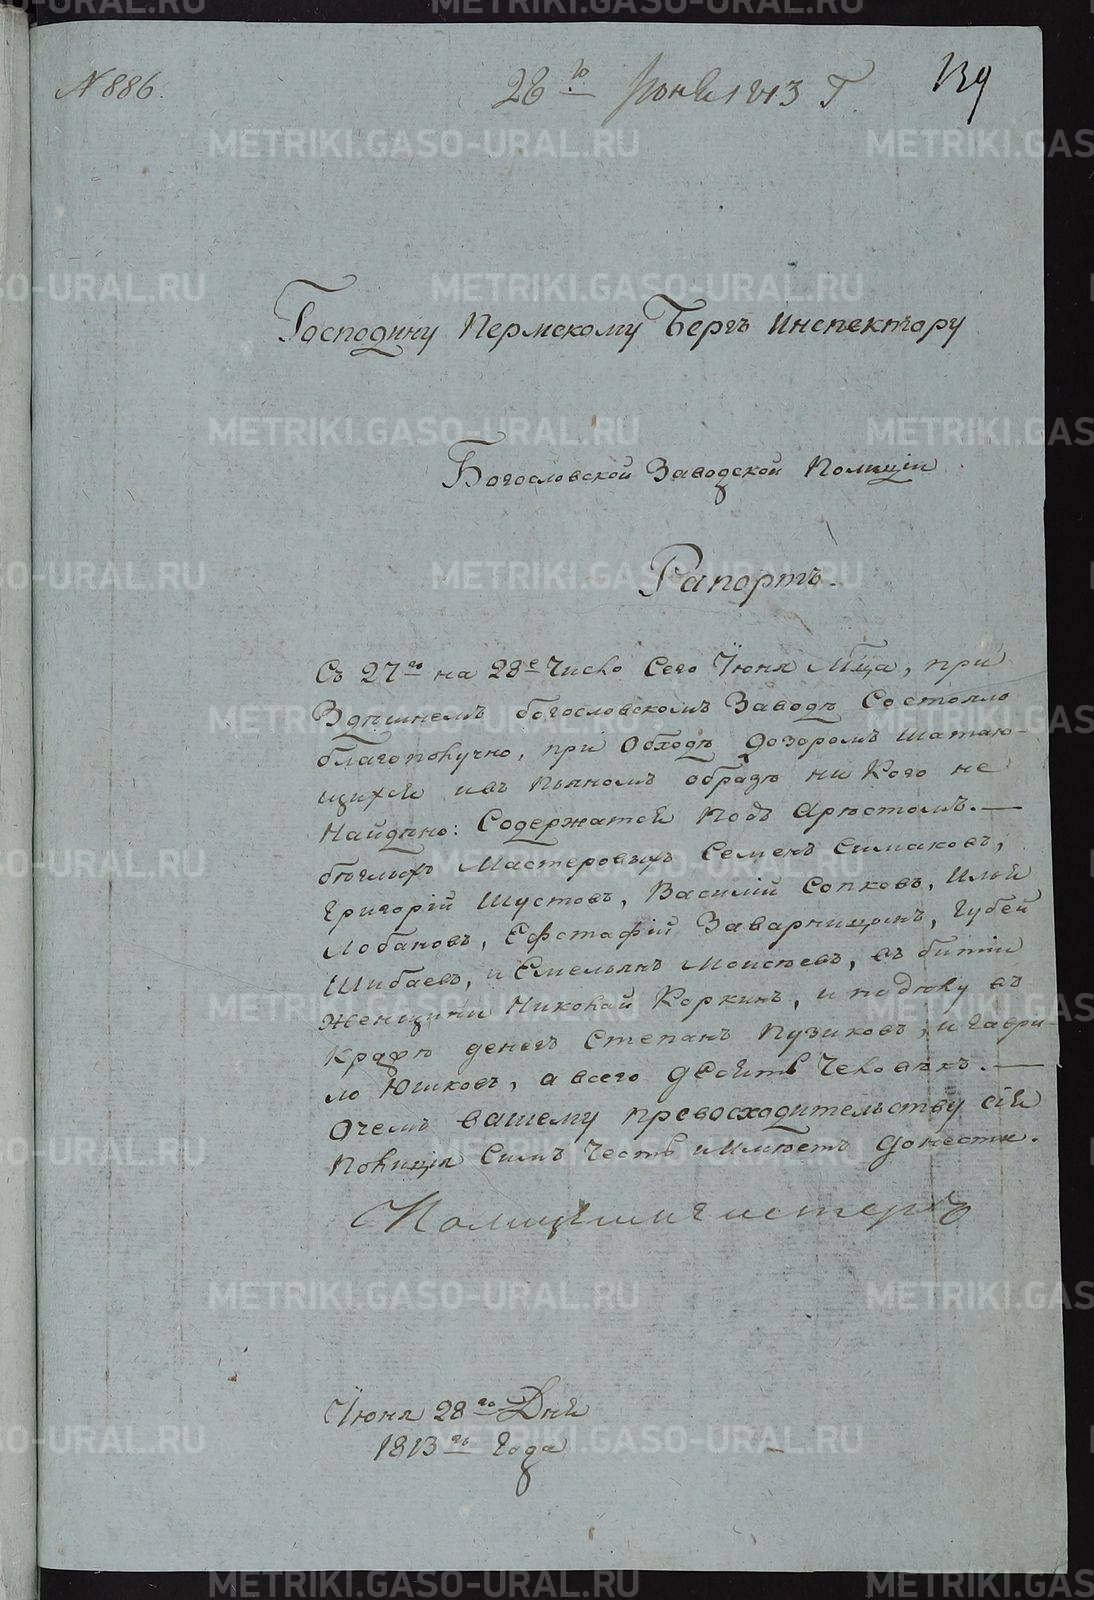 № 886.
28го Июня 1813 Г.
139
Господину Пермскому Бергъ Инспектору
Богословской Заводской Полиціи
Рапортъ.
Съ 27го на 28е Число Сего Июня Мца, при
Здѣшнемъ богословскомъ Заводѣ Состояло
благополучно, при Обходѣ дозоромъ шатаю-
щихся ивъ Пьяномъ образѣ ни Кого не
Найдено: Содержатся Подъ Арестомъ. —
беглыхъ Мастеровыхъ Семенъ Симаковъ,
Григорій Шустовъ, Василій Сопковъ, Илья
Лобановъ, Ефстафій Заварницынъ, Губей
Шибаевъ, и Емельянъ Моисѣевъ, въ битіи
Женщины Николай Коркинъ, и подѣлу въ
Кражѣ денегъ Степанъ Пузиковъ, и Гаври-
ло Юшковъ, а всего десять Человѣкъ. —
Очемъ вашему превосходительству сія
Полиція Симъ Честь иМѣетъ донести.
Полицеймейстеръ
Июня 28го Дня
1813го Года
METRIKI.GASO-URAL.RU